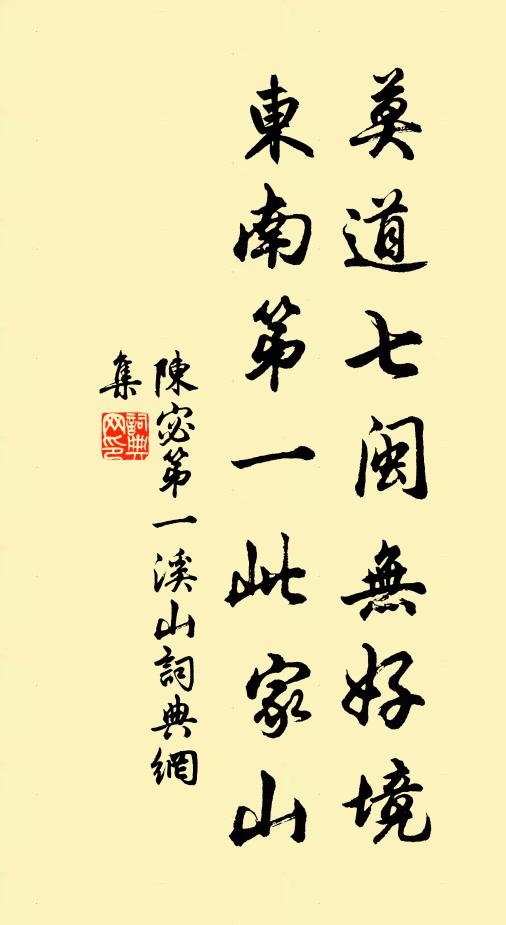 莫道七閩無好境
東南第一此家山
陳宓第一溪山詞典網
集
詞典
網印